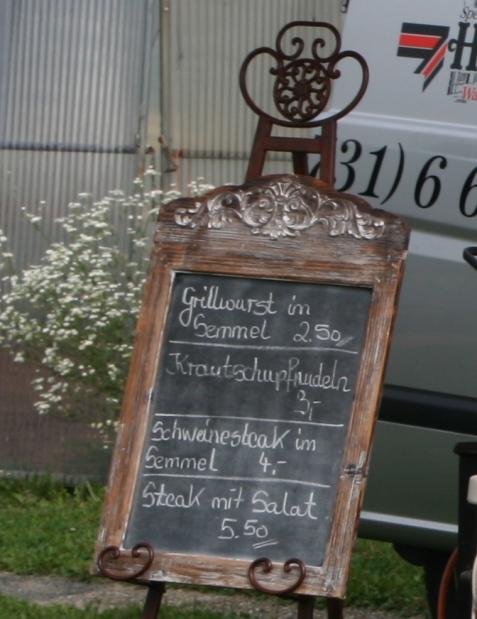 Grillwurst in
Semmel 2.50
Krautschupfnudeln
3,-
Schweinesteak im
Semmel 4.-
Steak mit Salat
5.50
31) 6 6